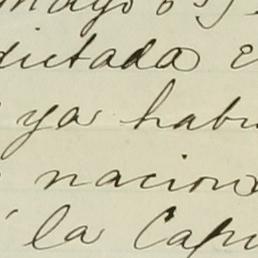 mayo
dictada
ya habi
nacion
la Capi